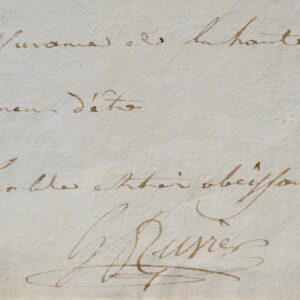 surance de la haute
neur d'être
humble et très obéissan
G Cuvier